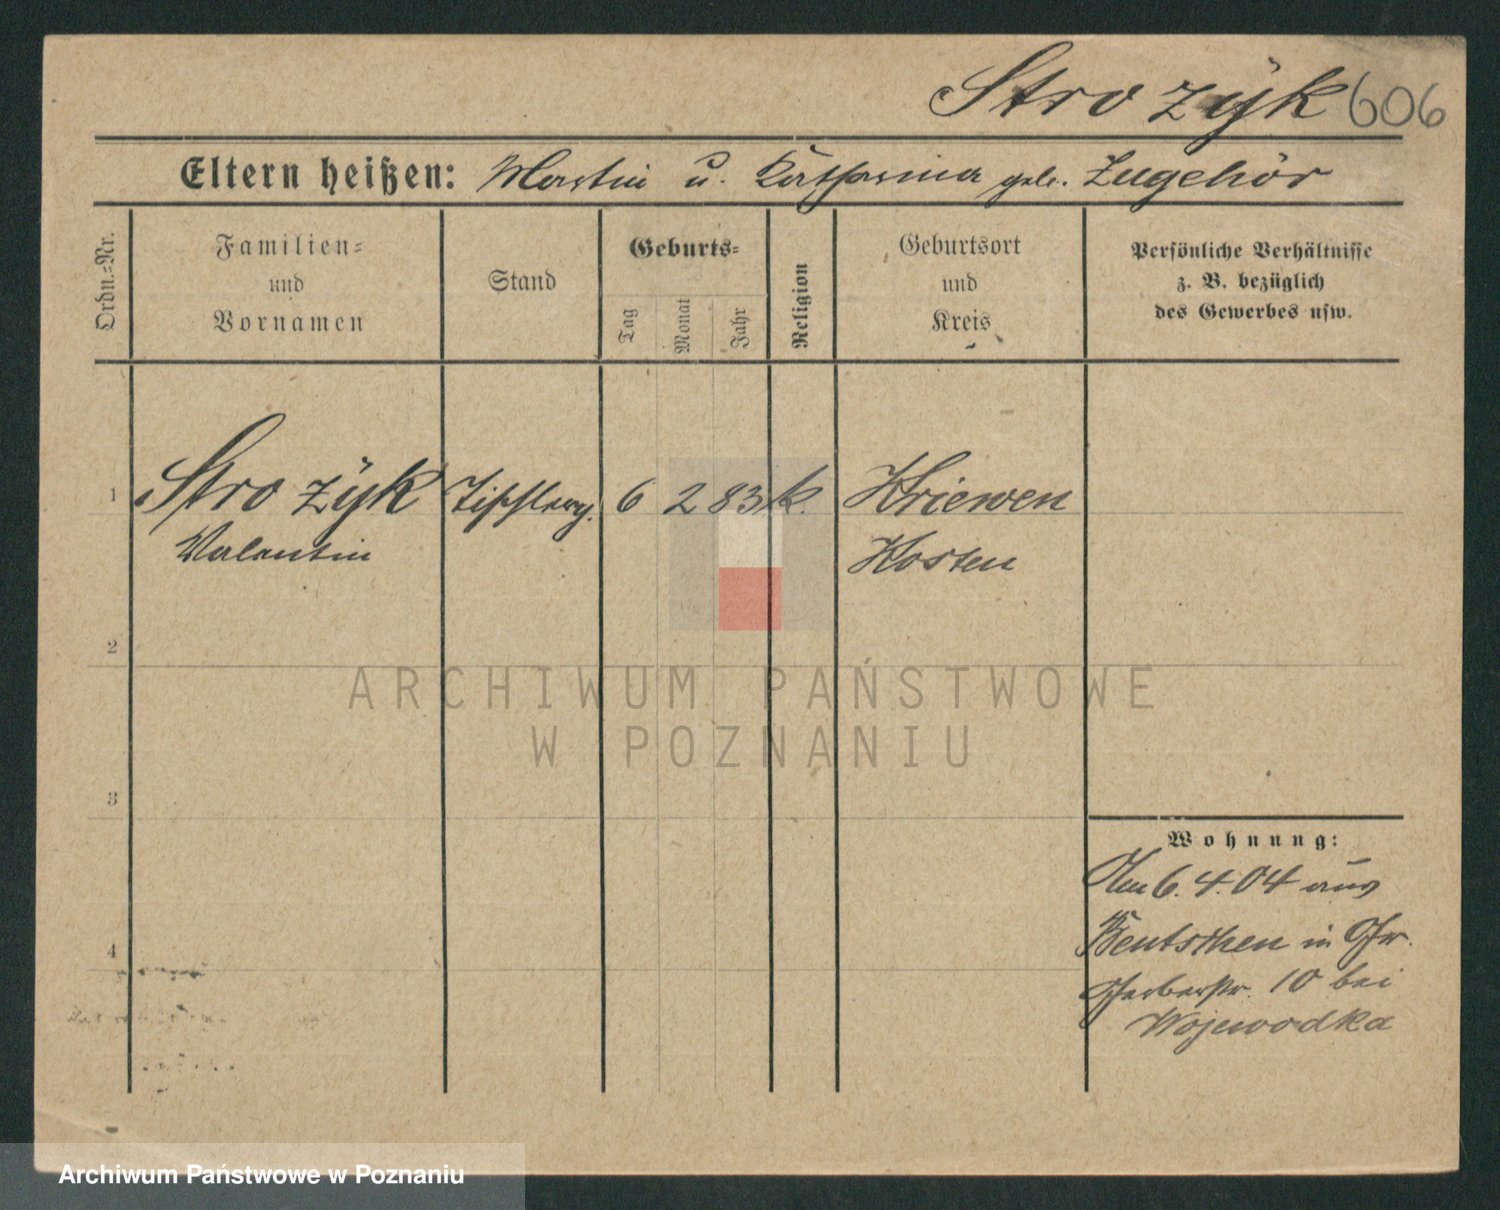 Strozÿk 606
Eltern heißen: Martin u. Katharina geb. Zugehör
Ordn.=Nr.
Familien=
und
Vornamen
Stand
Geburts=
Tag
Monat
Jahr
Religion
Geburtsort
und
Kreis
Persönliche Verhältnisse
z. B. bezüglich
des Gewerbes usw.
1 Strozÿk Tischlerg. 6 2 83 k. Kriewen
Valentin Kosten
2
ARCHIWUM PAŃSTWOWE
W POZNANIU
3
Wohnung:
Am 6.4.04 aus
Bentschen in
4
10 bei
Wojewodka
Archiwum Państwowe w Poznaniu